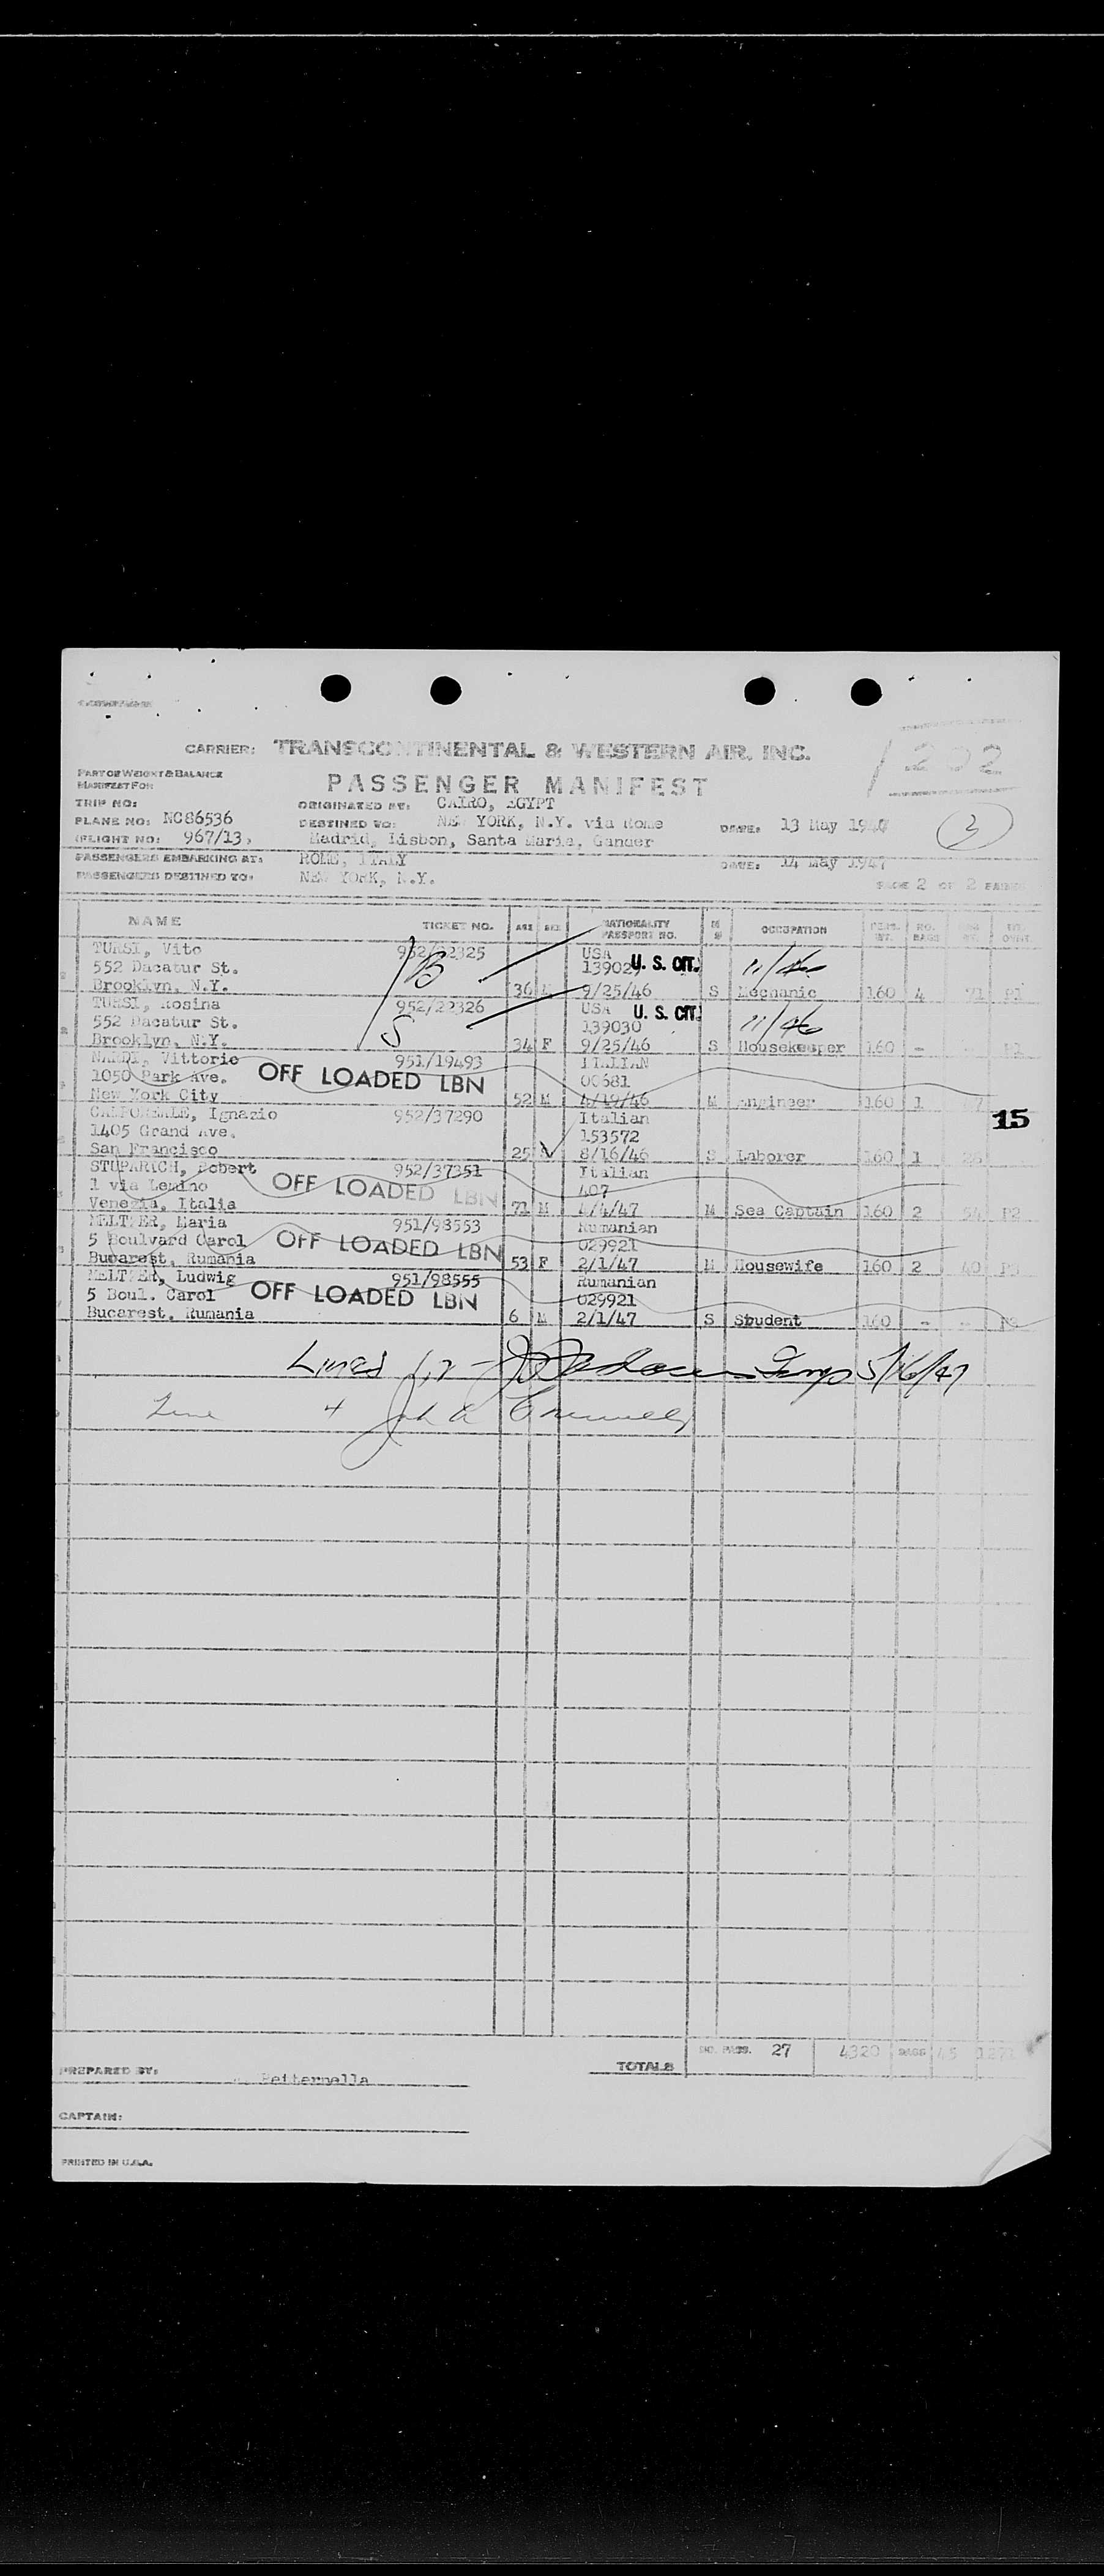 1202
CARRIER: TRANSCONTINENTAL & WESTERN AIR, INC.
PART OF WEIGHT & BALANCE
MANIFEST FOR
PASSENGER MANIFEST
TRIP NO:
ORIGINATED AT: CAIRO, EGYPT
PLANE NO: NC86536
DESTINED TO: NEW YORK, N.Y. via Rome
DATE: 13 May 1947
FLIGHT NO: 967/13,
Madrid, Lisbon, Santa Maria, Gander
PASSENGERS EMBARKING AT: ROME, ITALY
DATE: 14 May 1947
PASSENGERS DESTINED TO: NEW YORK, N.Y.
PAGE 2 OF 2 PAGES
NAME TICKET NO. AGE SEX NATIONALITY PASSPORT NO. M S OCCUPATION NO. BAGS
TURSI, Vito 952/22325 USA
552 Dacatur St. B 13902 U. S. CIT. 11/46
Brooklyn, N.Y. 36 M 9/25/46 S Mechanic 160 4 71 P1
TURSI, Rosina 952/22326 USA U. S. CIT.
552 Dacatur St. S 139030 11/46
Brooklyn, N.Y. 34 F 9/25/46 S Housekeeper 160 -
NARDI, Vittorio 951/19493 ITALIAN
1050 Park Ave. OFF LOADED LBN 00681
New York City 52 M 4/19/46 M Engineer 160 1
Ignazio 952/37290 Italian 15
1405 Grand Ave. 153572
San Francisco 25 8/16/46 S Laborer 160 1
STUPARICH, Robert 952/37351 Italian
1 via OFF LOADED LBN 407
Venezia, Italia 71 M 4/4/47 M Sea Captain 160 2 54 P2
MELTZER, Maria 951/98553 Rumanian
5 Boulvard Carol OFF LOADED LBN 029921
Bucarest, Rumania 53 F 2/1/47 M Housewife 160 2 40
MELTZER, Ludwig 951/98555 Rumanian
5 Boul. Carol OFF LOADED LBN 029921
Bucarest, Rumania 6 M 2/1/47 S Student 160 - -
5/16/47
TOTALS NO. PASS. 27 4320 BAGS 45
PREPARED BY: Petternella
CAPTAIN:
PRINTED IN U.S.A.